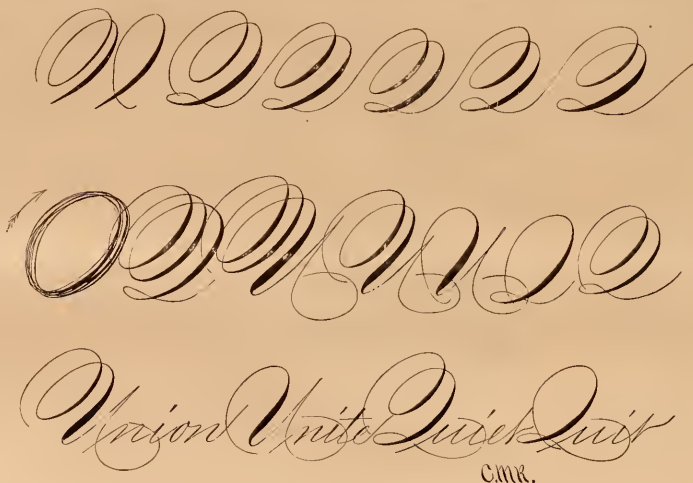 Q Q Q Q Q
Q U U U Q Q
Union Unite Quick Quit
C.M.R.